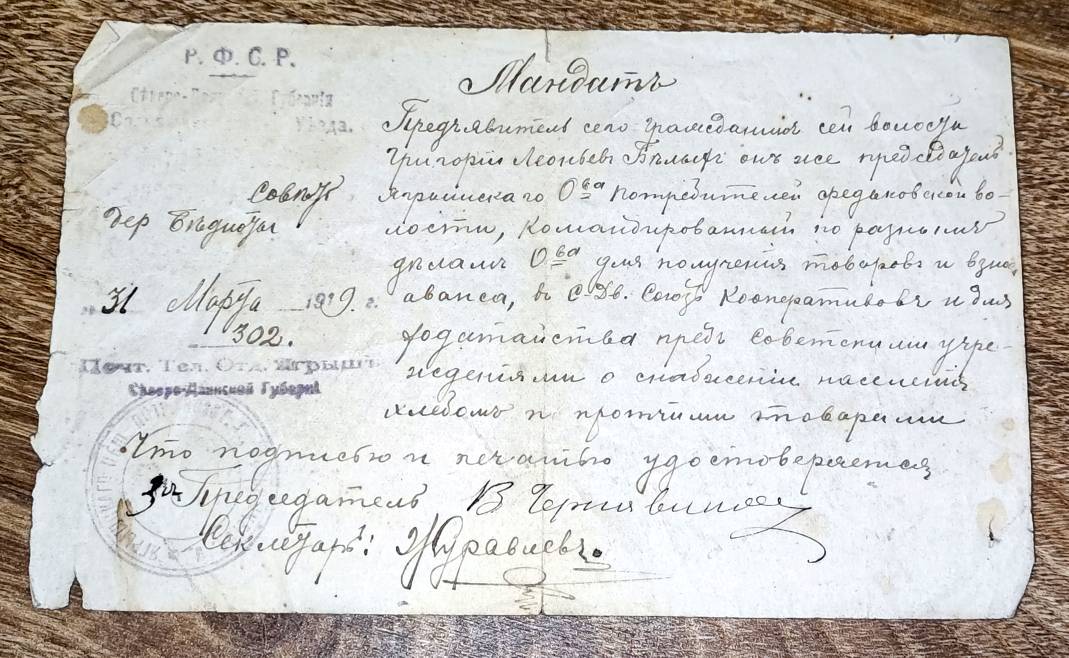 Р. Ф. С. Р.
Сѣверо- Губернія
Уѣзда.
Совѣтъ
дер Бѣдноты
31 Марта 1919. г.
302.
Почт. Тел. Отд. Ягрышъ
Сѣверо-Двинской Губерніи
Мандатъ
Предъявитель сего гражданинъ сей волости
Григорій Леоньевъ Бѣлыхъ онъ же председатель
Ягрышскаго О-ва потребителей федьковской во-
лости, командированный по разнымъ
дѣламъ О-ва для получения товаровъ и взноса
аванса, въ С-Дв. Союзъ Кооперативовъ и для
ходатайства предъ советскими учре-
ждениями о снабжении населения
хлебомъ и протчими товарами
Что подписью и печатью удостоверяется
Председатель В Чернявин
Секлетарь: Журавлевъ.